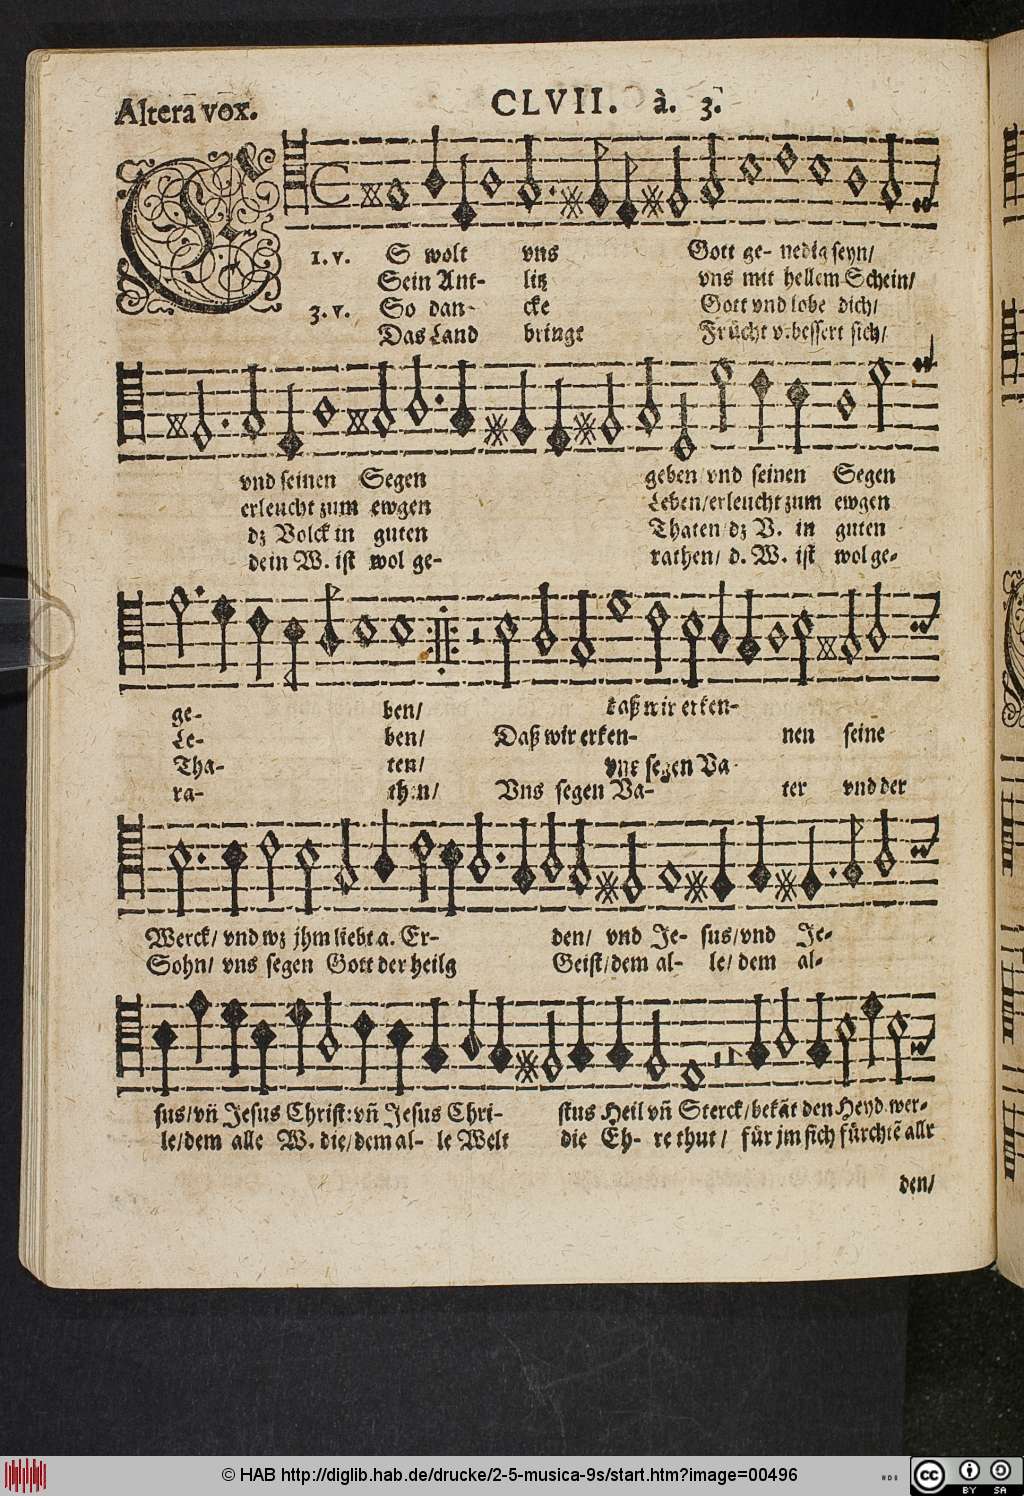 Altera vox. CLVII. à. 3.
1. v. ES wolt vns Gott ge- nedig seyn/
Sein Ant- litz vns mit hellem Schein/
3. v. So dan- cke Gott vnd lobe dich/
Das Land bringt Frücht v. bessert sich/
vnd seinen Segen geben/ vnd seinen Segen
erleucht zum ewgen Leben/ erleucht zum ewgen
dz Volck in guten Thaten/ dz V. in guten
dein W. ist wol ge- rathen/ d. W. ist wol ge-
ge- ben/ daß wir erken-
Le- ben/ Daß wir erken- nen seine
Tha- ten/ vns segen Va-
ra- then/ Vns segen Va- ter vnd der
Werck/ vnd wz jhm liebt a. Er- den/ vnd Je- sus/ vnd Je-
Sohn/ vns segen Gott der heilg Geist/ dem al- le/ dem al-
sus/ vn̄ Jesus Christ: vn̄ Jesus Chri- stus Heil vn̄ Sterck/ bekāt den Heyd. wer-
le/ dem alle W. die/ dem al- le Welt die Eh- re thut/ für jm sich fürchtē allr
den/
© HAB http://diglib.hab.de/drucke/2-5-musica-9s/start.htm?image=00496
cc BY SA